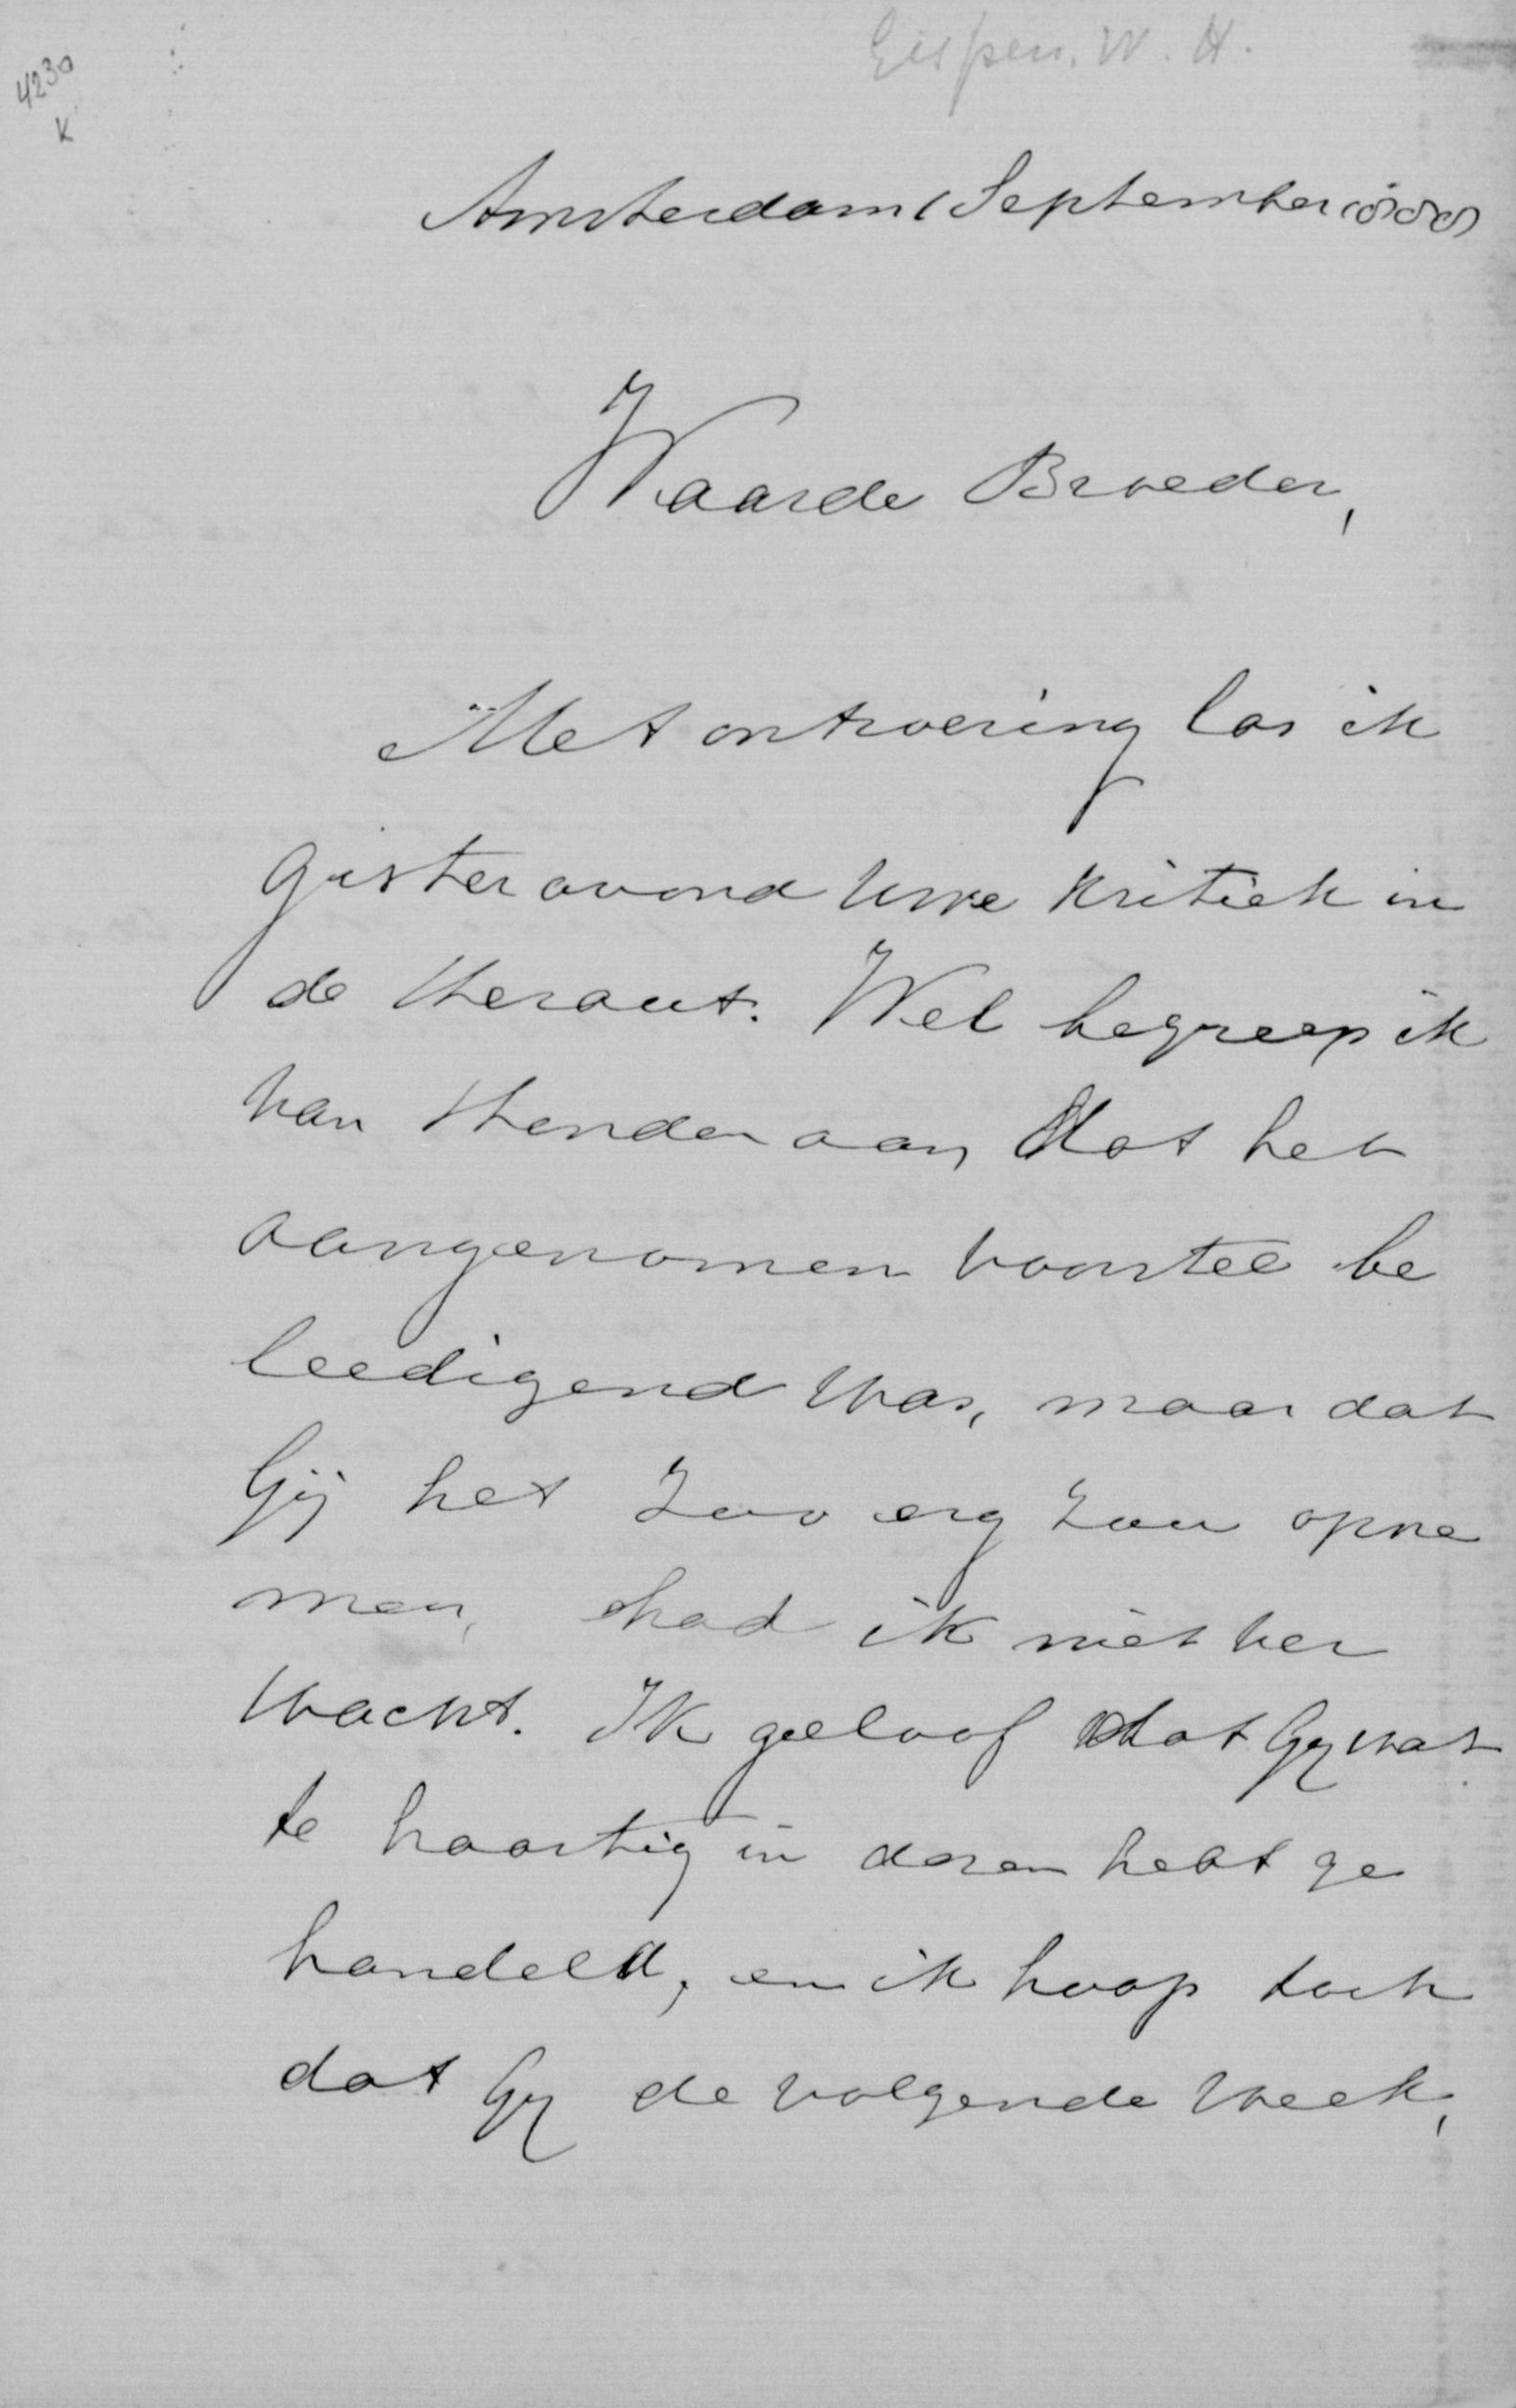 Gispen. W. H.
4230
K
Amsterdam 1 September 1888
Waarde Broeder,
Met ontroering las ik
gisteravond Uwe kritiek in
de Heraut. Wel begreep ik
van Uwent aan dat het
aangenomen voorstel be
leedigend was, maar dat
Gij het zoo erg zou opne
men, had ik niet ver
wacht. Ik geloof dat Gij wat
te haastig in dezen hebt ge
handeld, en ik hoop toch
dat Gij de volgende week,